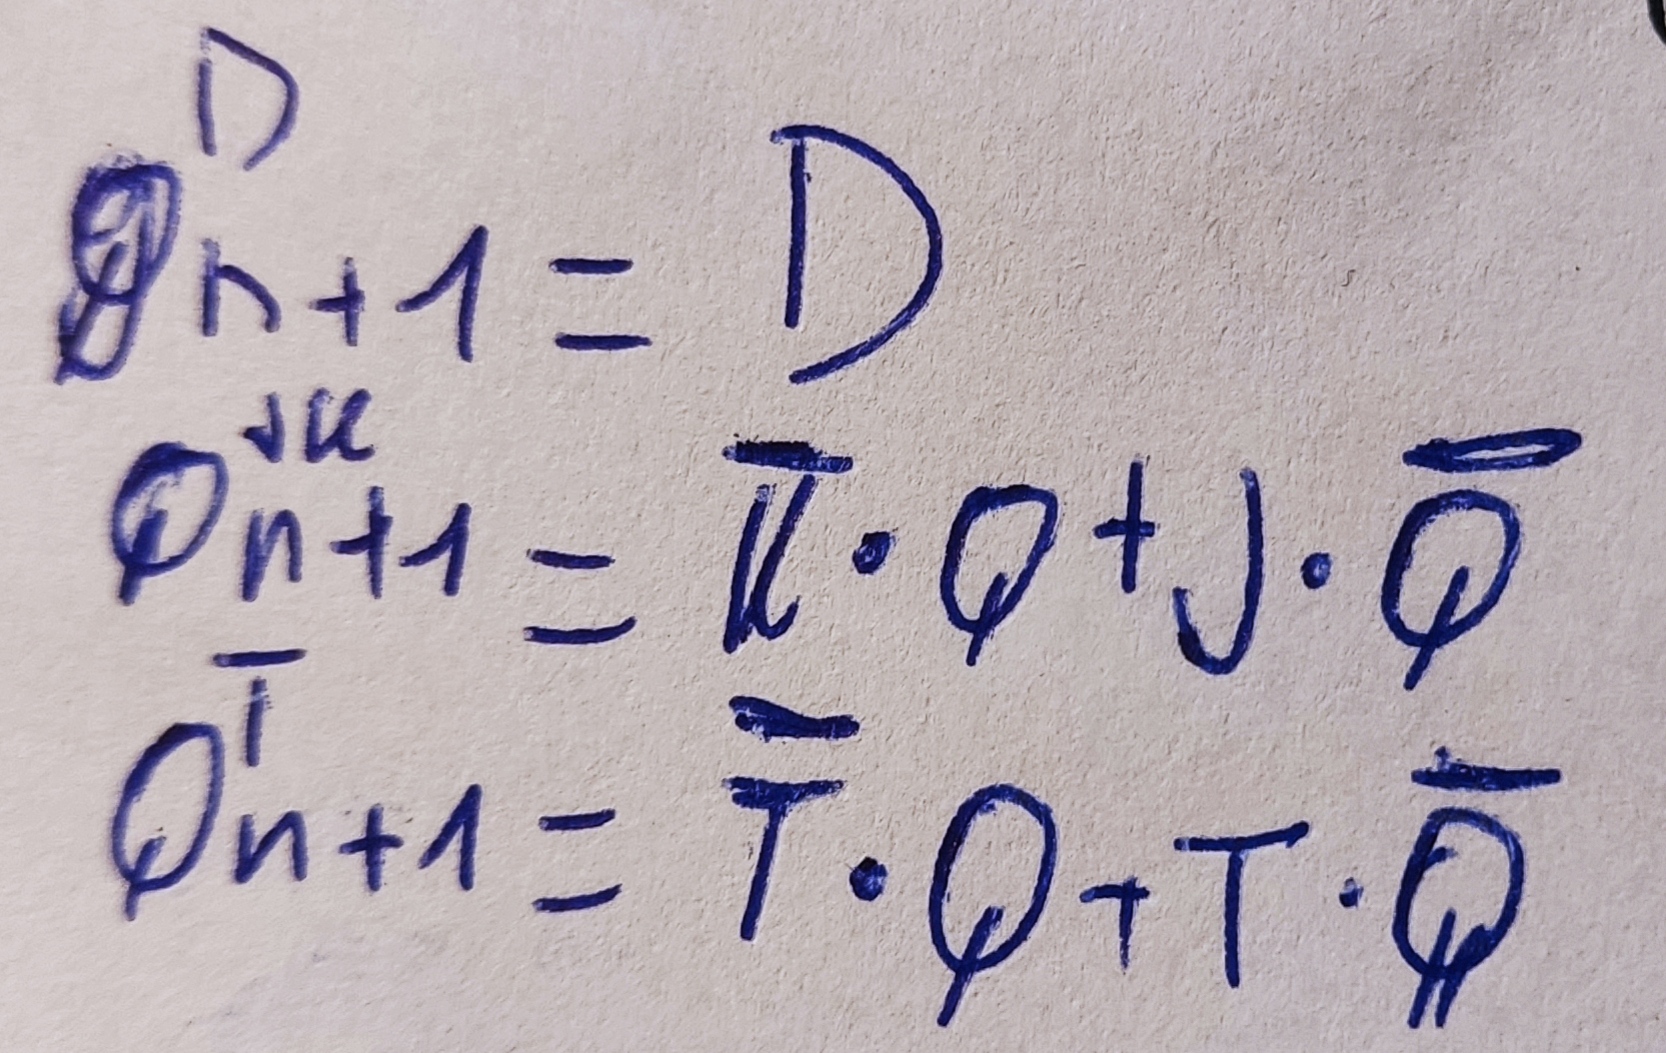 Q^D n+1 = D
Q^JK n+1 = K̅ · Q + J · Q̅
Q^T n+1 = T̅ · Q + T · Q̅